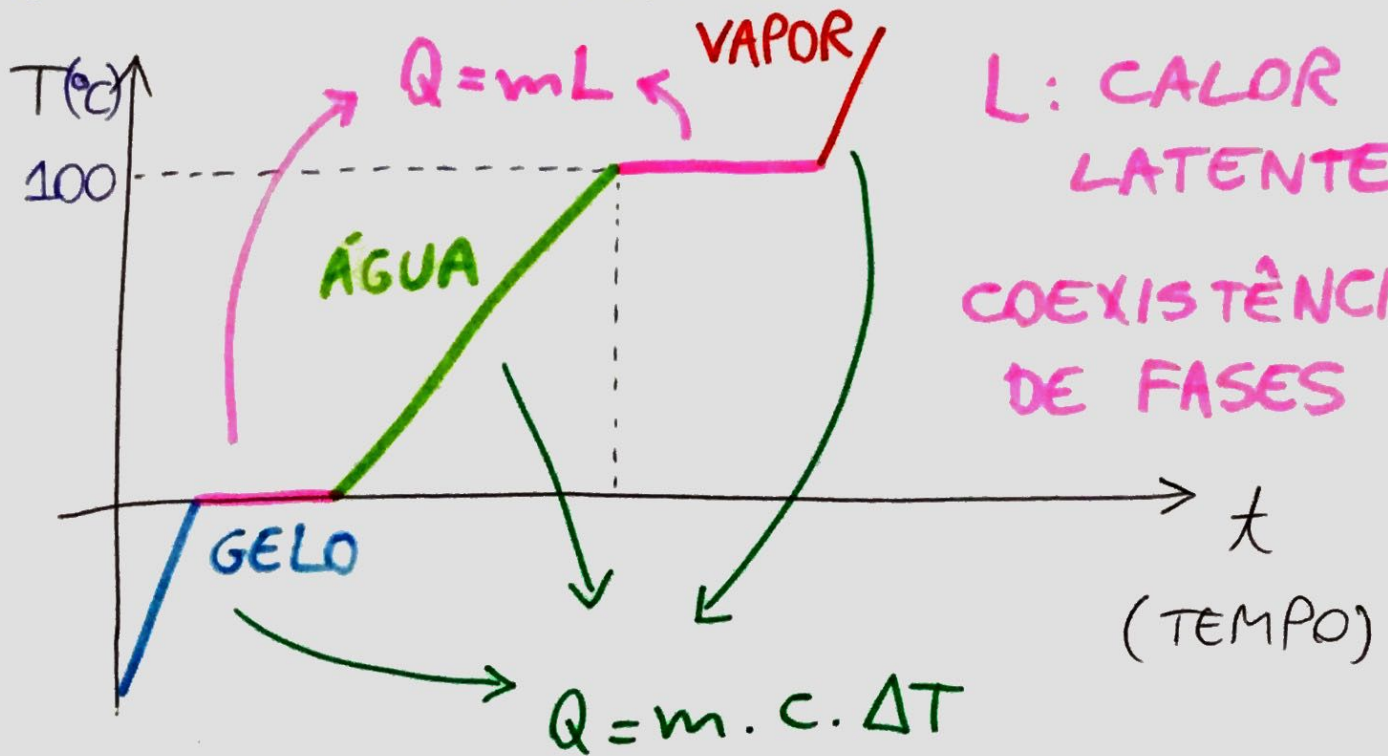 T(°C)
Q = mL
VAPOR
L: CALOR
LATENTE
100
ÁGUA
COEXISTÊNCI
DE FASES
GELO
t
(TEMPO)
Q = m . c . ΔT